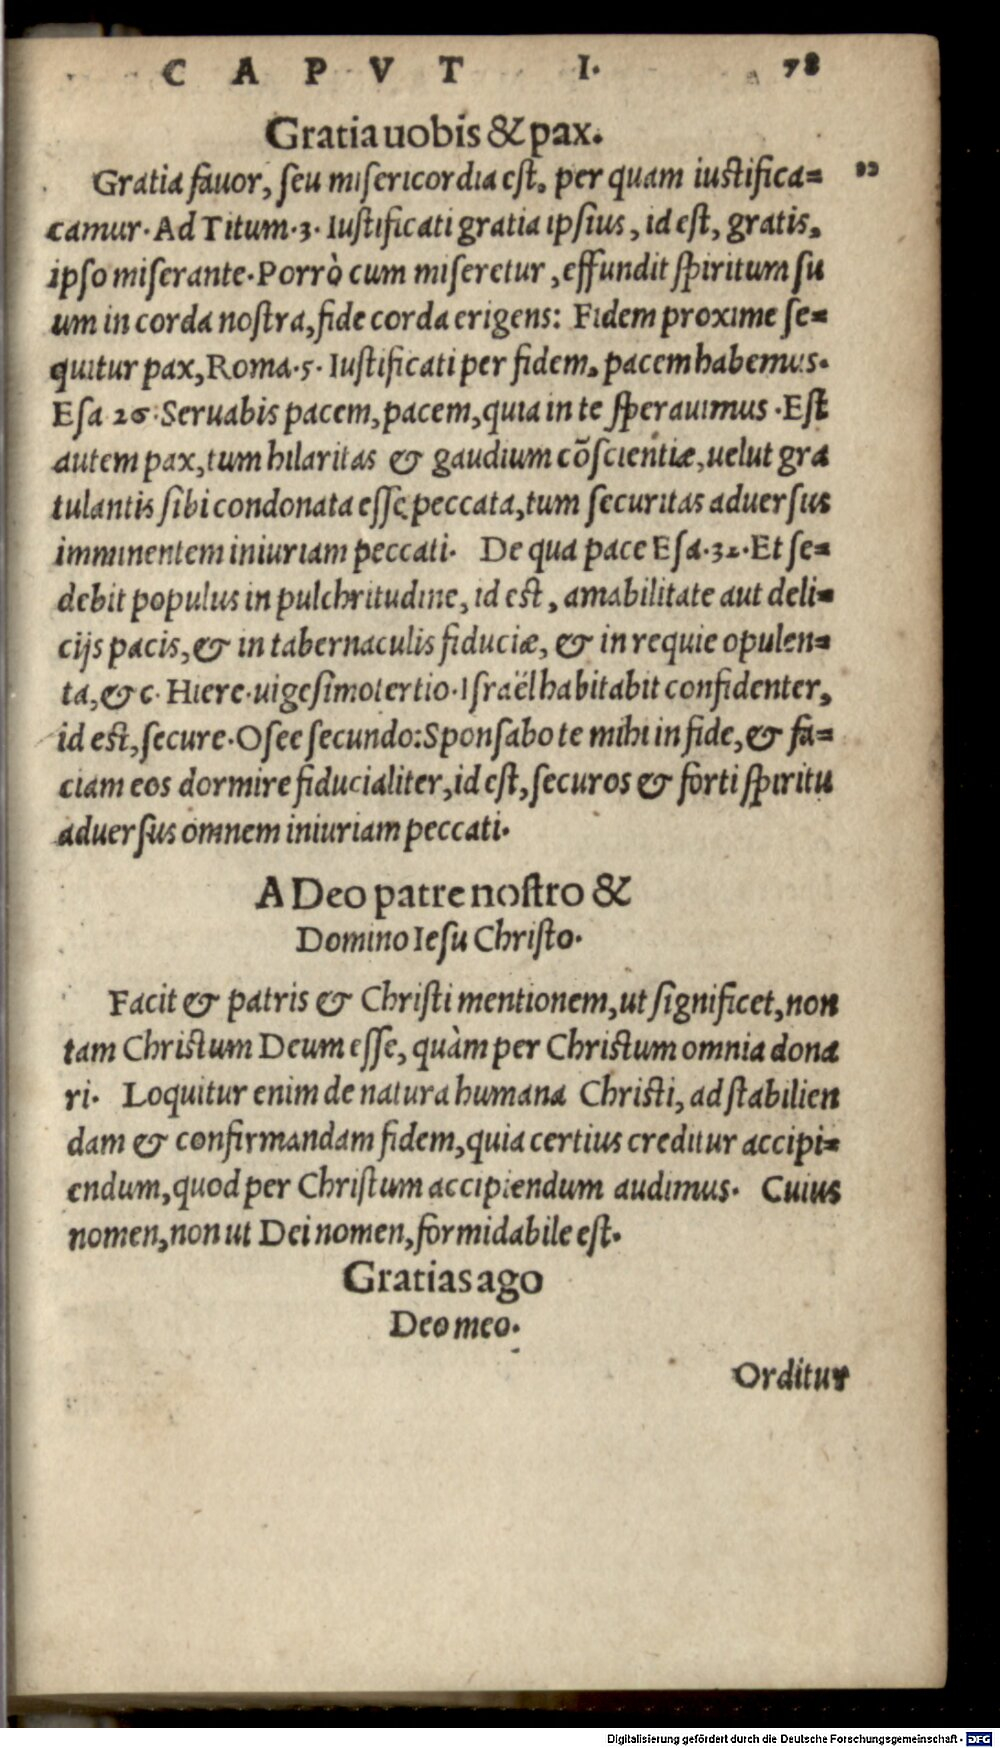 CAPVT I. 78
Gratia uobis & pax.
Gratia fauor, seu misericordia est. per quam iustifica=
camur. Ad Titum.3. Iustificati gratia ipsius, id est, gratis.
ipso miserante. Porrò cum miseretur, effundit spiritum su
um in corda nostra, fide corda erigens: Fidem proxime se=
quitur pax, Roma.5. Iustificati per fidem. pacem habemus.
Esa 26: Seruabis pacem, pacem, quia in te sperauimus. Est
autem pax, tum hilaritas & gaudium cõscientiæ, uelut gra
tulantis sibi condonata esse peccata, tum securitas aduersus
imminentem iniuriam peccati. De qua pace Esa.32. Et se=
debit populus in pulchritudine, id est, amabilitate aut deli=
cijs pacis, & in tabernaculis fiduciæ, & in requie opulen=
ta, &c. Hiere. uigesimotertio. Israël habitabit confidenter,
id est, secure. Osee secundo: Sponsabo te mihi in fide, & fa=
ciam eos dormire fiducialiter, id est, securos & forti spiritu
aduersus omnem iniuriam peccati.
A Deo patre nostro &
Domino Iesu Christo.
Facit & patris & Christi mentionem, ut significet, non
tam Christum Deum esse, quàm per Christum omnia dona
ri. Loquitur enim de natura humana Christi, ad stabilien
dam & confirmandam fidem, quia certius creditur accipi=
endum, quod per Christum accipiendum audimus. Cuius
nomen, non ut Dei nomen, formidabile est.
Gratias ago
Deo meo.
Orditur
Digitalisierung gefördert durch die Deutsche Forschungsgemeinschaft - DFG